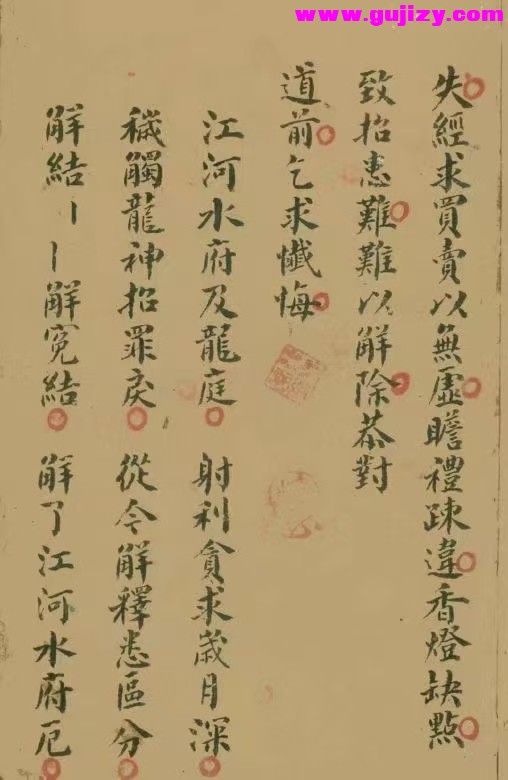 www.gujizy.com
失經求買賣以無虛瞻禮踈違香燈缺點
致招患難難以解除恭對
道前乞求懺悔
江河水府及龍庭 射利貪求歲月深
穢觸龍神招罪戾 從今解釋悉區分
解結丨丨解冤結 解了江河水府厄